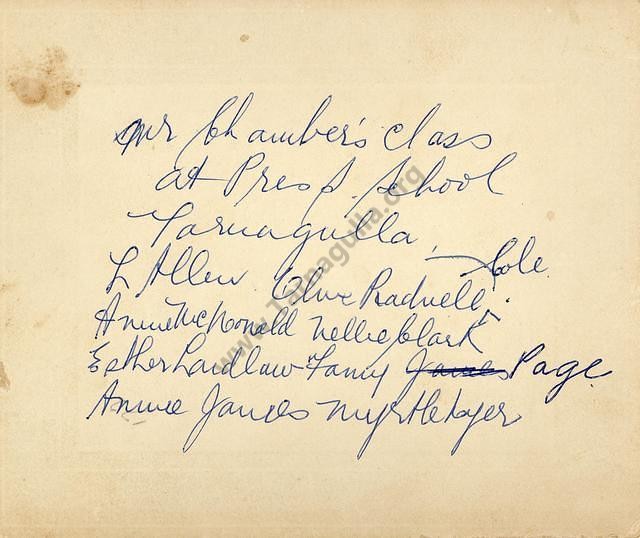 Mr Chamber's class
at Pres S. School
Tarnagulla
L Allen Olive Pradnell Cole
Annie McDonald Nellie Clark
Esther Laidlaw Fanny James Page
Annie James Myrtle
www.Tarnagulla.org